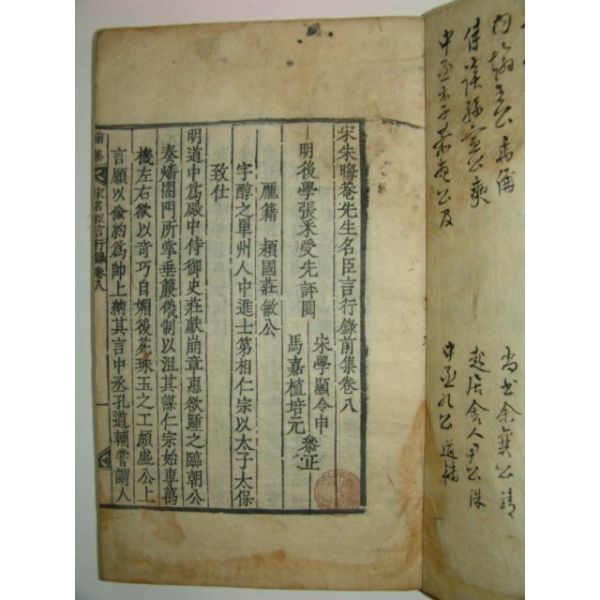 尚書余襄公靖
起居舍人尹公洙
中丞孔公道輔
宋朱晦菴先生名臣言行錄前集卷八
明後學張采受先評閱
宋學顯令申
馬嘉植培元
參正
龐籍 潁國莊敏公
字醇之單州人中進士第相仁宗以太子太保
致仕
明道中為殿中侍御史莊獻崩章惠欲踵之臨朝公
奏燔閤門所掌垂簾儀制以沮其謀仁宗始專萬
機左右欲以奇巧自媚後苑珠玉之工頗盛公上
言願以儉約為師上納其言中丞孔道輔嘗謂人
前集 宋名臣言行錄卷八 一